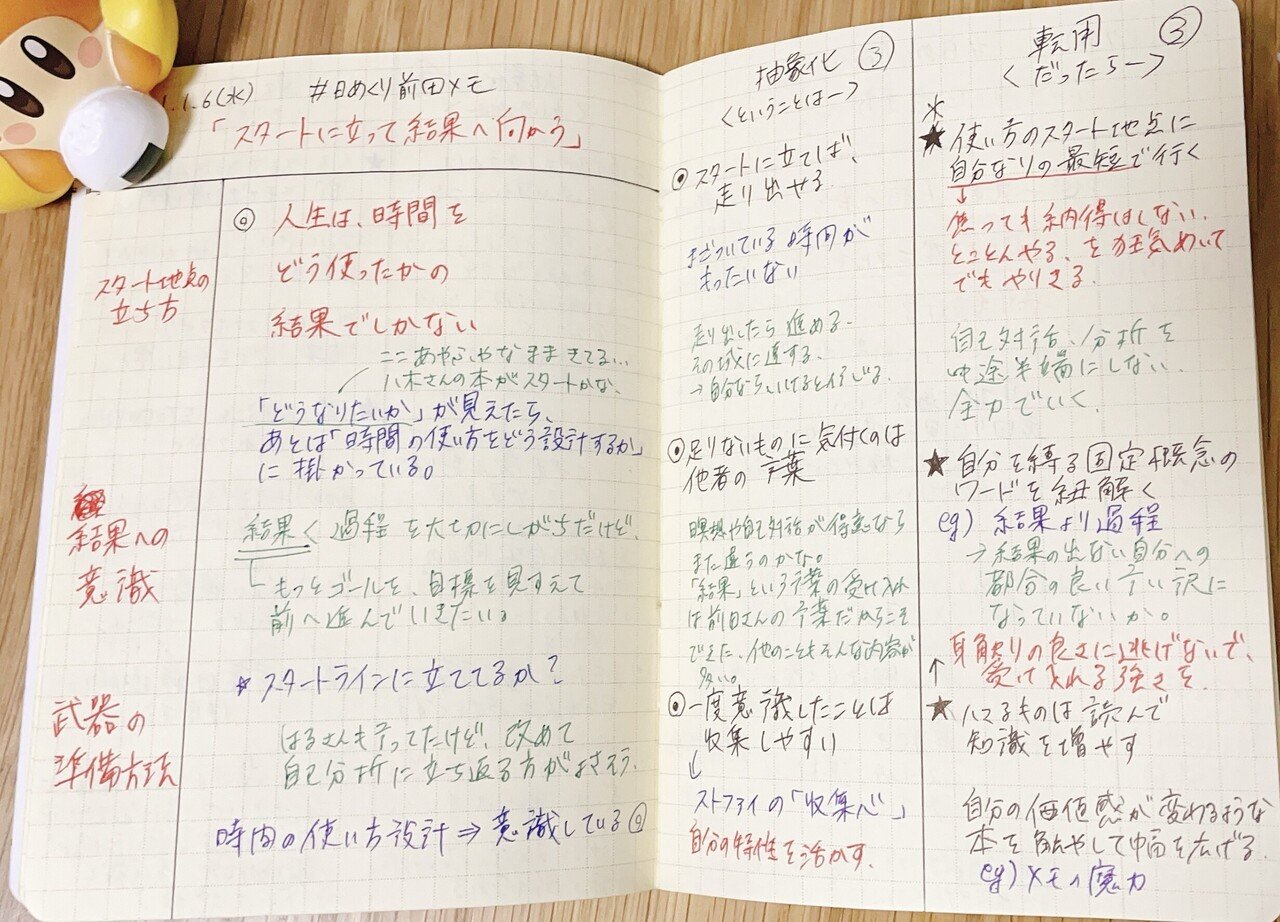 1.6(水) #日めくり前田メモ
「スタートに立って結果へ向かう」
スタート地点の
立ち方
結果への
意識
武器の
準備方法
人生は、時間を
どう使ったかの
結果でしかない
ここあやふやなままきてる…
八木さんの本がスタートかな、
「どうなりたいか」が見えたら、
あとは「時間の使い方をどう設計するか」
に掛かっている。
結果<過程を大切にしがちだけど、
もっとゴールを、目標を見すえて
前へ進んでいきたい。
☆スタートラインに立ててるか?
はるさんも言ってたけど、改めて
自己分析に立ち返る方がよさそう。
時間の使い方設計⇒意識している
抽象化 ③
<ということは->
スタートに立てば、
走り出せる
まごついている時間が
もったいない
走り出したら進める。
その域に達する。
→自分ならいけると信じる。
足りないものに気付くのは
他者の言葉
瞑想や自己対話が得意なら
また違うのかな。
「結果」という言葉の受け入れ
は前田さんの言葉だからこそ
できた、他のこともそんな内容が
多い。
一度意識したことは
収集しやすい
↓
ストファイの「収集心」
自分の特性を活かす.
転用 ③
<だったら->
*
★使い方のスタート地点に
自分なりの最短で行く
↓
焦っても納得はしない、
とことんやる、を狂気めいて
でもやりきる.
自己対話、分析を
中途半端にしない、
全力でいく.
★自分を縛る固定概念の
ワードを紐解く
eg) 結果より過程
→結果の出ない自分への
都合の良い言い訳に
なっていないか。
身触りの良さに逃げないで、
↑受け入れる強さを.
★ハマるものは読んで
知識を増やす
自分の価値感が変わるような
本を触やして幅を広げる.
eg) メモの魔力